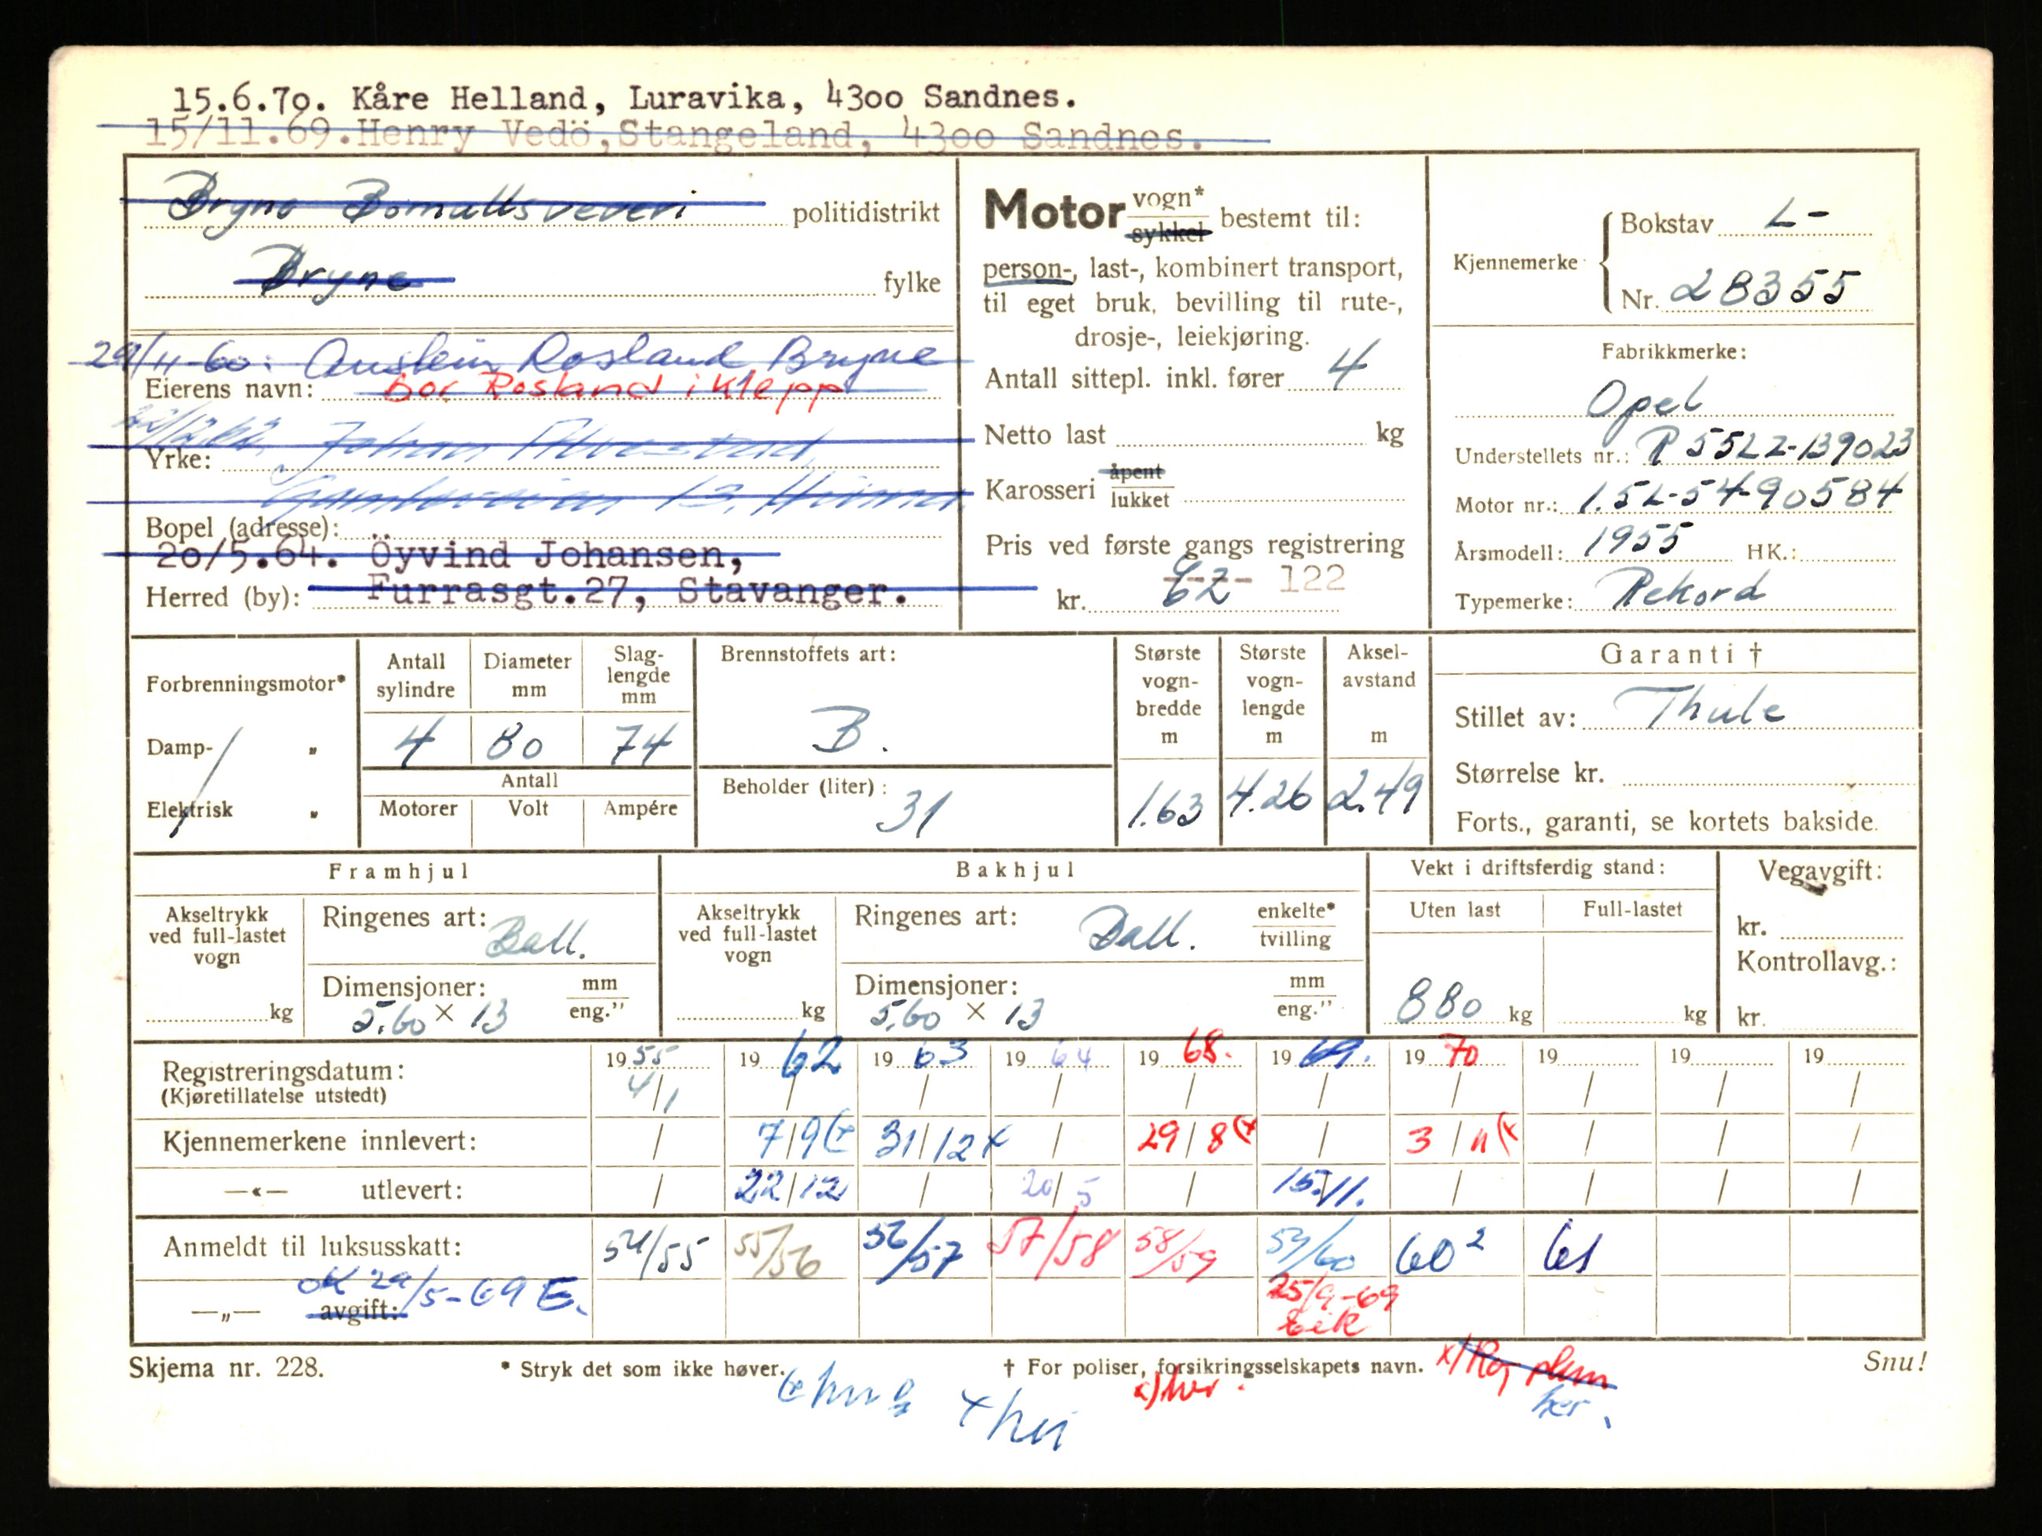 15.6.70. Kåre Helland, Luravika, 4300 Sandnes.
15/11.69. Henry Vedö, Stangeland, 4300 Sandnes.
Bryne Bomullsveveri politidistrikt
Bryne fylke
29/11-60: Austein Rosland Bryne
Eierens navn: bor Rosland i Klepp
22/12.62. Johan
Yrke:
Bopel (adresse):
20/5.64. Öyvind Johansen,
Herred (by): Furrasgt.27, Stavanger.
Motor vogn* sykkel bestemt til:
person-, last-, kombinert transport,
til eget bruk, bevilling til rute-,
drosje-, leiekjøring.
Antall sittepl. inkl. fører 4
Netto last kg
Karosseri åpent lukket
Pris ved første gangs registrering
kr. 122
Kjennemerke Bokstav L-
Nr. 28355
Fabrikkmerke:
Opel
Understellets nr.: R 55LZ-139023
Motor nr.: 1.5L-54-90584
Årsmodell: 1955 HK.:
Typemerke: Rekord
Forbrenningsmotor*
Damp- "
Elektrisk "
Antall sylindre
Diameter mm
Slag-lengde mm
4 80 74
Antall
Motorer Volt Ampére
Brennstoffets art:
B.
Beholder (liter):
31
Største vogn-bredde m
1.63
Største vogn-lengde m
4.26
Aksel-avstand m
2.49
Garanti †
Stillet av: Thule
Størrelse kr.
Forts., garanti, se kortets bakside.
Framhjul
Akseltrykk ved full-lastet vogn
kg
Ringenes art: Ball.
Dimensjoner: mm eng."
5.60 × 13
Bakhjul
Akseltrykk ved full-lastet vogn
kg
Ringenes art: Ball. enkelte* tvilling
Dimensjoner: mm eng."
5.60 × 13
Vekt i driftsferdig stand:
Uten last Full-lastet
880 kg kg
Vegavgift:
kr.
Kontrollavg.:
kr.
Registreringsdatum: 1955 1962 1963 1964 1968. 1969. 1970 19 19 19
(Kjøretillatelse utstedt) 4/1 / / / / / / / / /
Kjennemerkene innlevert: / 7/9 (x 31/12 x / 29/8 (x / 3/11 (x / / /
—«— utlevert: / 22/12 / 20/5 / 15./11. / / / /
Anmeldt til luksusskatt: 54/55 55/56 56/57 57/58 58/59 59/60 60² 61
—„— avgift: OK 29/5-69 E. 25/9-69
Skjema nr. 228. * Stryk det som ikke høver. † For poliser, forsikringsselskapets navn. Snu!
x) her.
her.